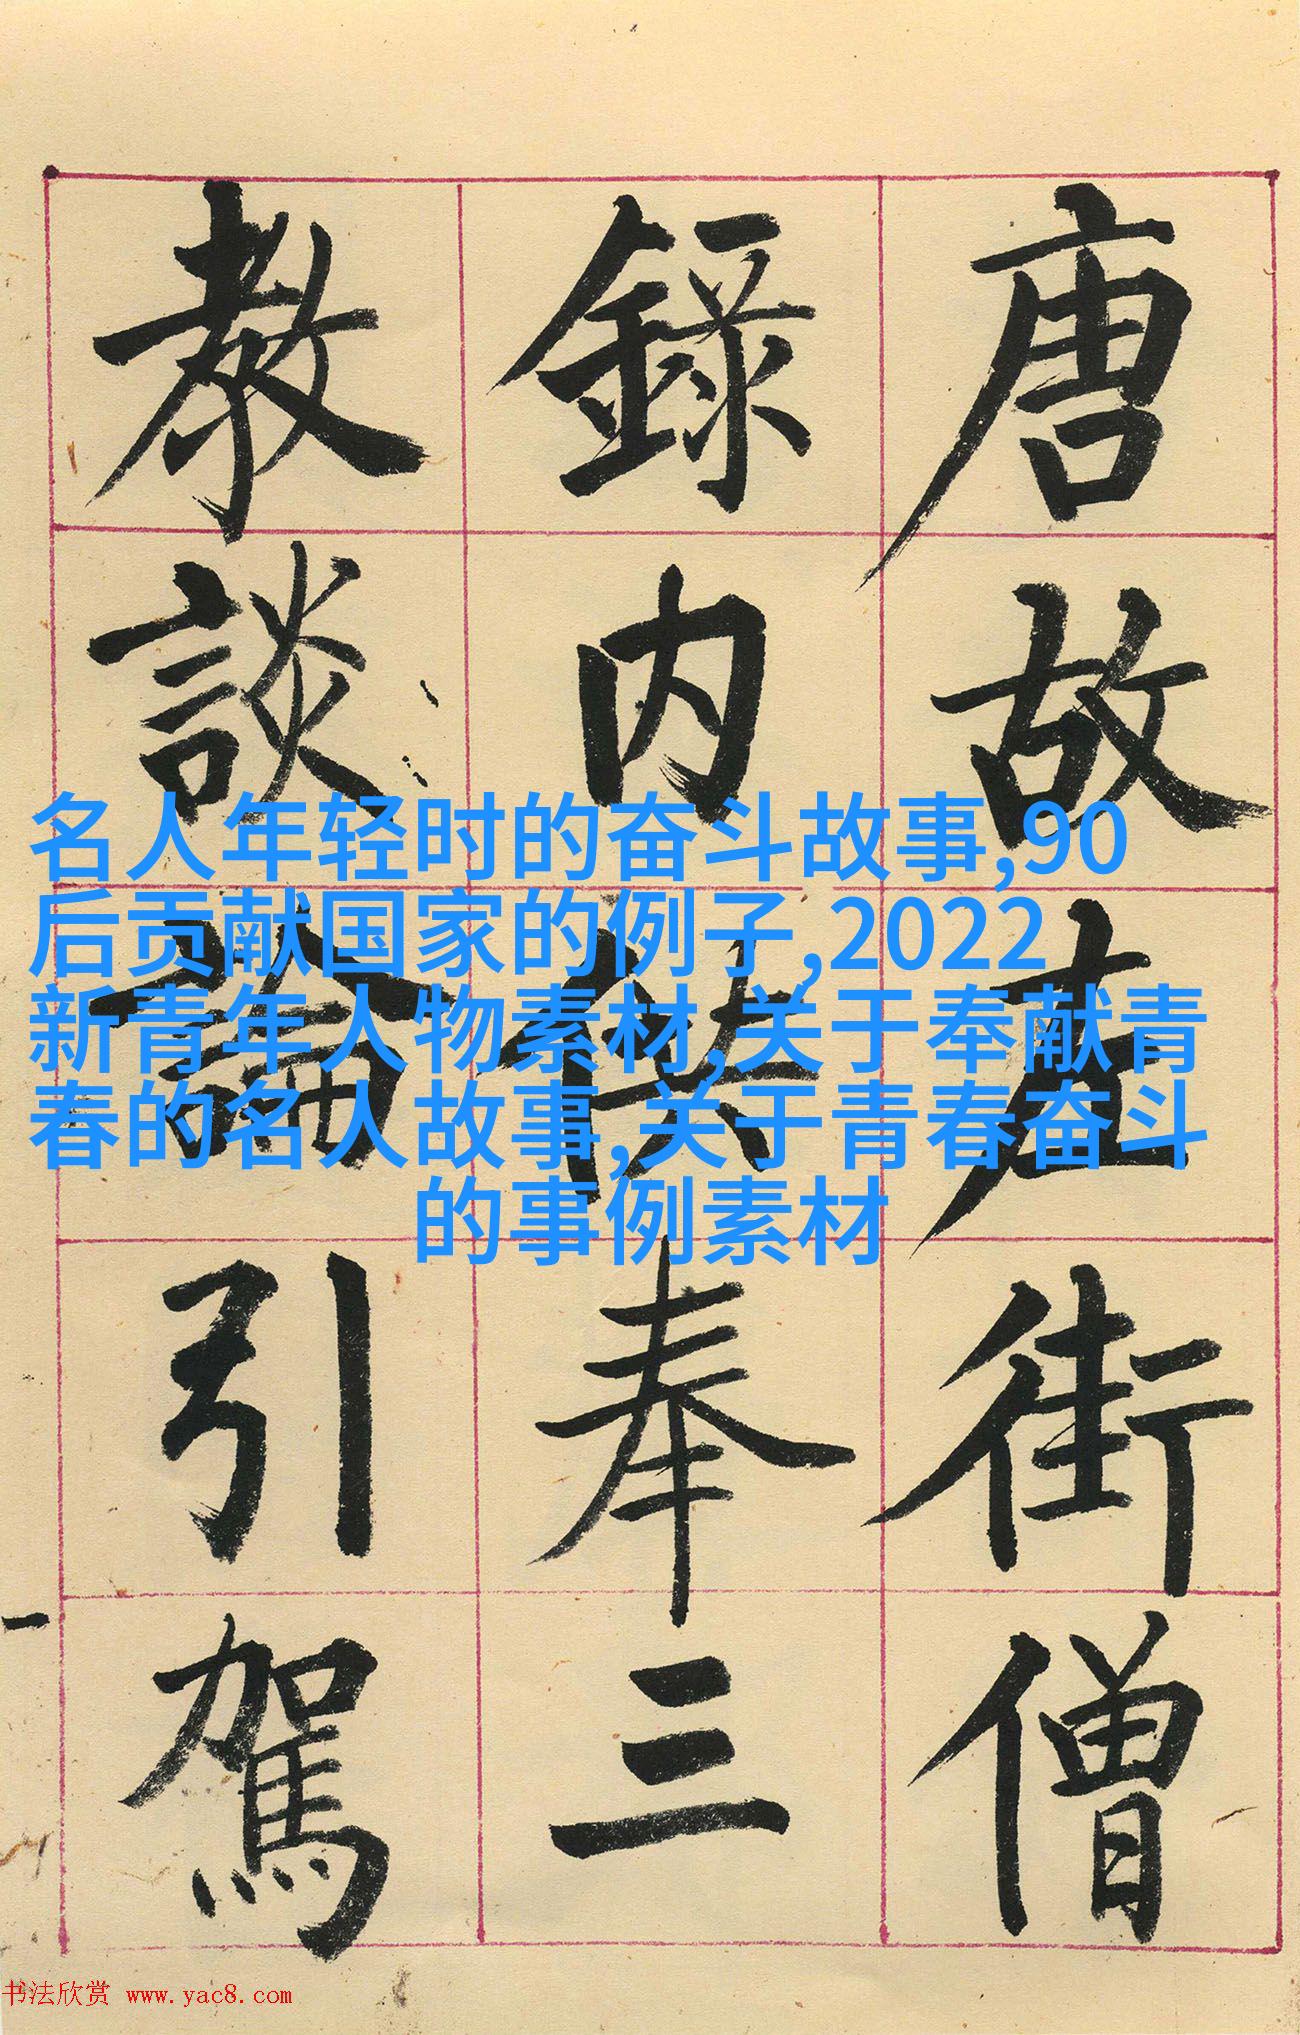 唐故左街僧
錄内供奉三
教談論引駕
名人年轻时的奋斗故事,90
后贡献国家的例子,2022
新青年人物素材,关于奉献青
春的名人故事,关于青春奋斗
的事例素材
书法欣赏 www.yac8.com